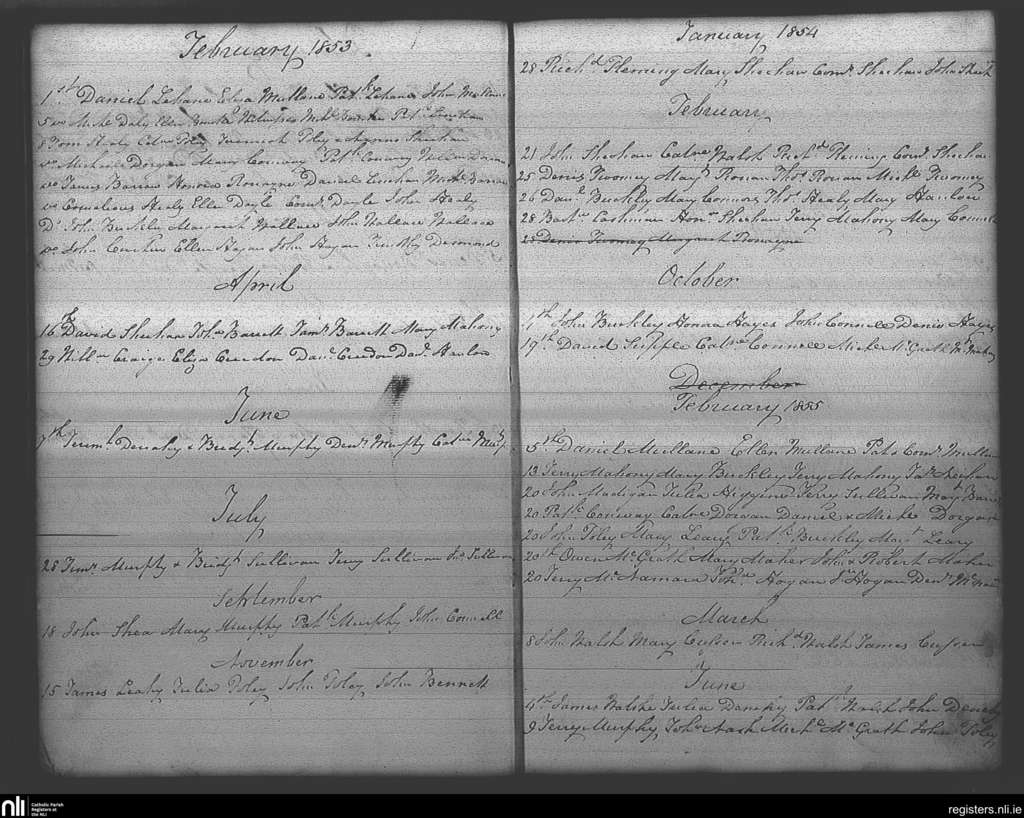 February 1853
1st Daniel Lehane Eliza Mullane Patk Lehane John Mullane
5 do Michl Daly Ellen
8 Thom Healy Cathne Foley Jeremiah Foley & Agnes Sheehan
do Michael Dorgan Mary Conway Patk Conway
do James Barron Honora Ronayne Daniel Linehan Michl Barron
do Cornelious Healy Ellen Doyle Corns Doyle John Healy
Do John Buckley Margaret Wallace John Wallace Wallace
do John Ellen Hogan John Hogan Timothy Desmond
April
16th David Sheehan Joha Barrett James Barrett Mary Mahony
29 Willm Craige Eliza Creedon Danl Creedon Davd Hanlon
June
7th Jermh Denahy & Bridgt Murphy Denis Murphy Cathne Murp
July
28 Timy Murphy & Bridgt Sullivan Jerry Sullivan Jno Sullivan
September
18 John Shea Mary Murphy Patk Murphy John Connell
November
15 James Leahy Julia Foley John Foley John Bennett
January 1854
28 Richd Fleming Mary Sheehan Corns Sheehan John Sheeh
February
21 John Sheehan Cathne Walsh Richd Fleming Corns Sheehan
25 Denis Twomey Mary Ronan Thos Ronan Michl Twomey
26 Danl Buckley Mary Connors Thos Healy Mary Hanlon
28 Batw Cashman Hona Sheehan Jerry Mahony Mary Connell
28 Denis Twomey Margaret Ronayne
October
1th John Buckley Honora Hayes John Connell Denis Hayes
19th David Supple Cathne Connell Michl McGrath
December
February 1855
5th Daniel Mullane Ellen Mullane Pat & Corns Mullane
13 Jerry Mahony Mary Buckley Jerry Mahony Jas Sheehan
20 John Madivan Julia Higgins Jerry Sullivan Mary Barre
20 Patk Conway Cathne Donovan Daniel & Michl Dorgan
20 John Foley Mary Leary Patk Buckley Margt Leary
20th Owen McGrath Mary Maher John & Robert Maher
20 Jerry McNamara Joha Hogan Jno Hogan Denis McNam
March
8 John Walsh Mary Cussen Richd Walsh James Cussen
June
4th James Walshe Julia Danehy Patk Walsh John Danehy
9 Jerry Murphy Joha Nash Michl McGrath John Foley
nli
Catholic Parish
Registers at
the NLI
registers.nli.ie